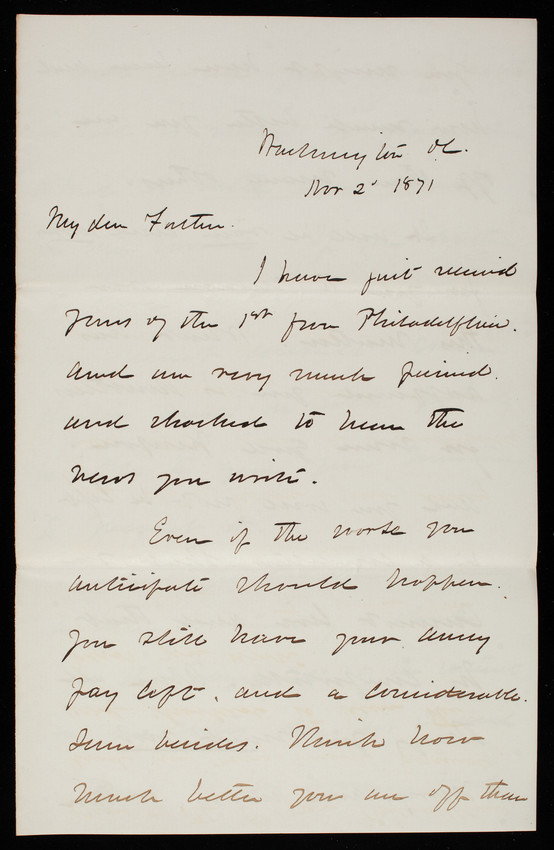 Washington DC.
Nov 2d 1871
My dear Father.
I have just received
yours of the 1st from Philadelphia.
and am very much pained.
and shocked to hear the
news you write.
Even if the worst you
anticipate should happen.
you still have your army
pay left. and a considerable.
sum besides. Think how
much better you are off than